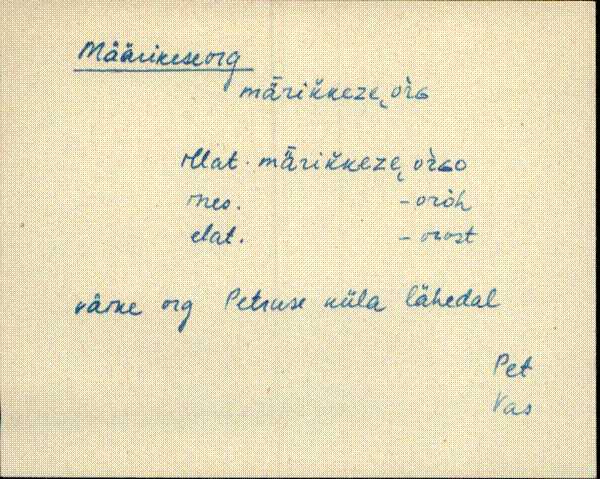 Määrikeseorg
märikkeze, org
illat. märikkeze, orgo
ines. - oroh
elat. - orost
väike org Petruse küla lähedal
Pet
Vas